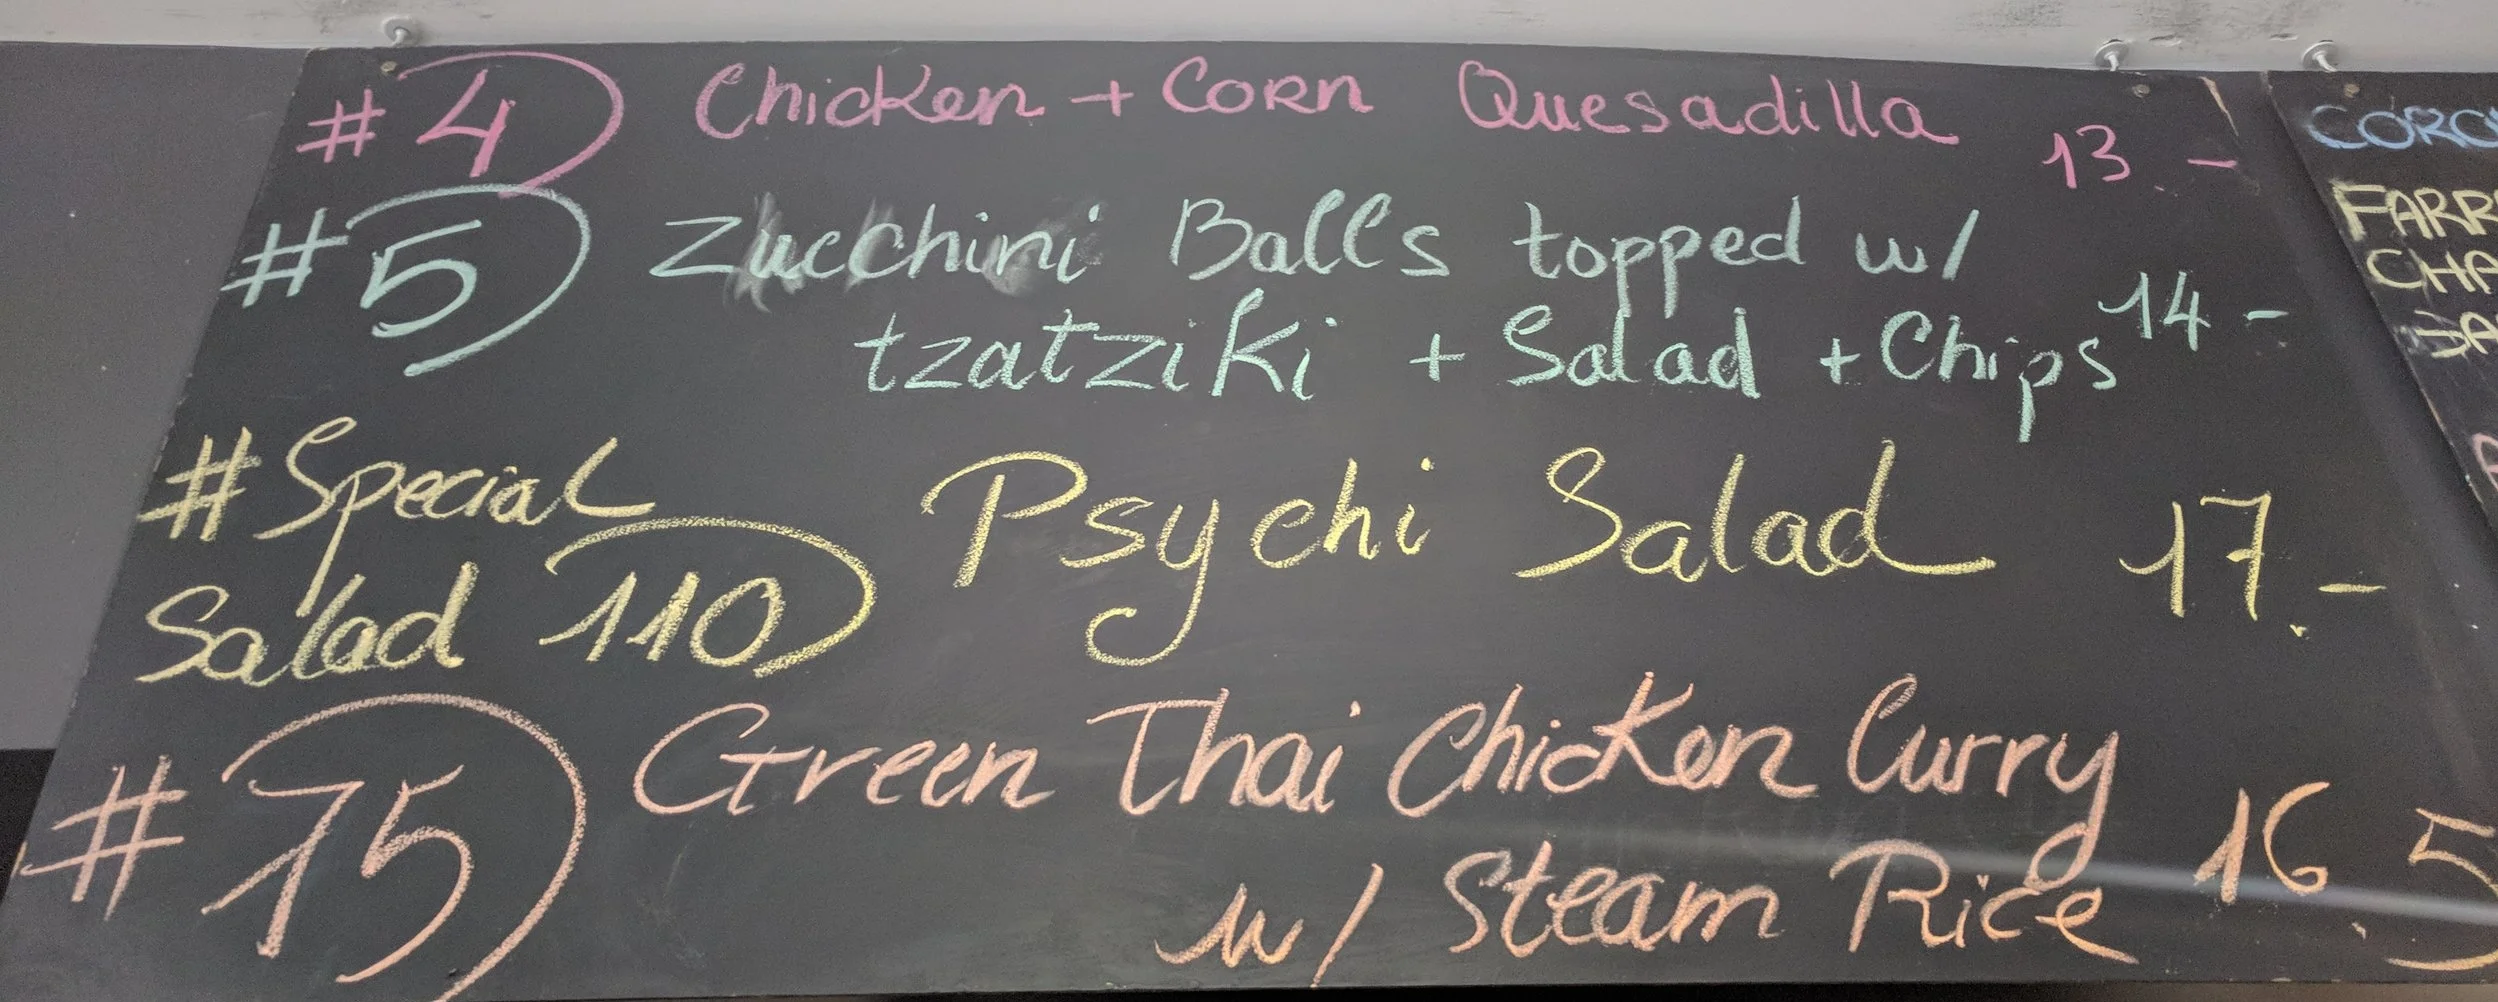 #4) Chicken + Corn Quesadilla 13.-
#5) Zucchini Balls topped w/
tzatziki + Salad + Chips 14-
#Special
Salad 110) Psychi Salad 17.-
#15) Green Thai Chicken Curry
w/ Steam Rice 16.5